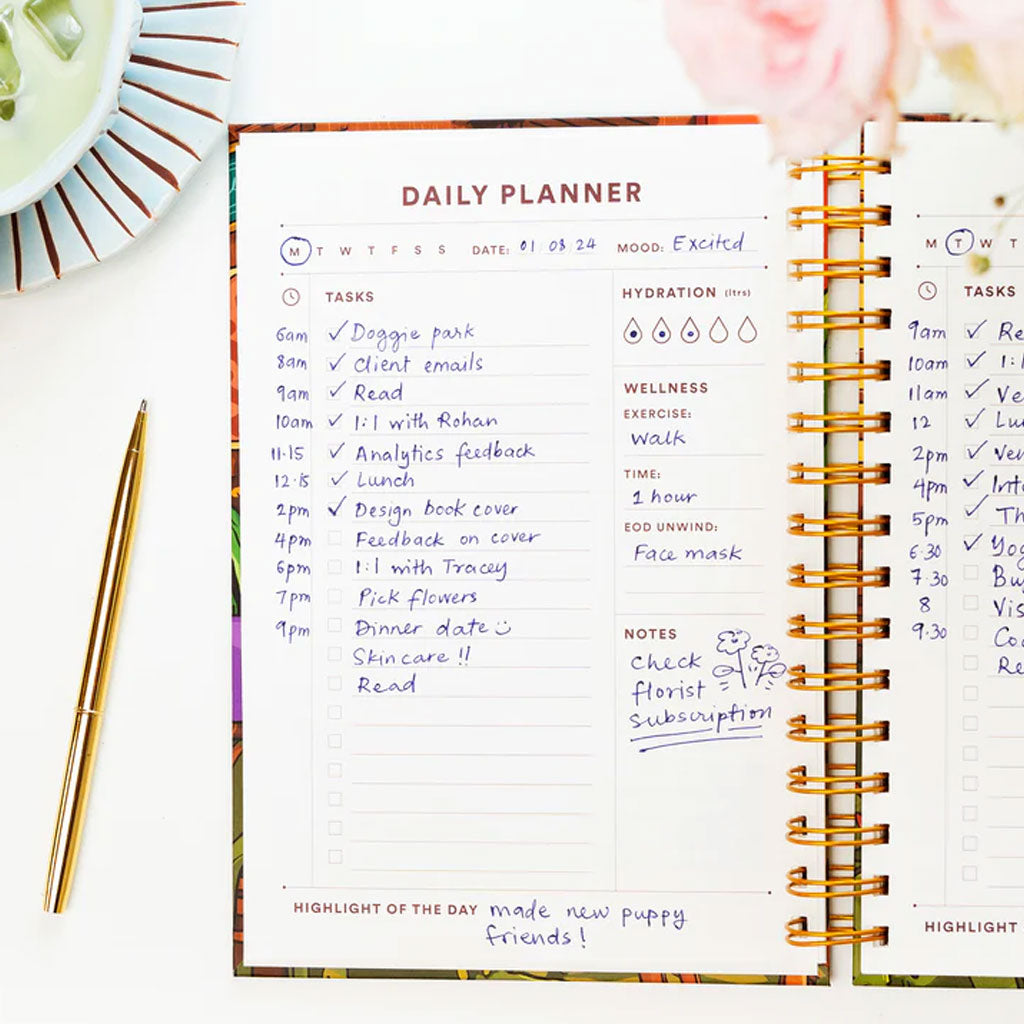 DAILY PLANNER
M T W T F S S DATE: 01/08/24 MOOD: Excited
TASKS
6am Doggie park
8am Client emails
9am Read
10am 1:1 with Rohan
11.15 Analytics feedback
12.15 Lunch
2pm Design book cover
4pm Feedback on cover
6pm 1:1 with Tracey
7pm Pick flowers
9pm Dinner date
Skincare !!
Read
HYDRATION (ltrs)
WELLNESS
EXERCISE:
Walk
TIME:
1 hour
EOD UNWIND:
Face mask
NOTES
Check
florist
subscription
HIGHLIGHT OF THE DAY made new puppy
friends!
M T W T
TASKS
9am Re
10am 1:1
11am Ve
12 Lu
2pm Ven
4pm Int
5pm Th
6.30 Yog
7.30 Bu
8 Vis
9.30 Co
Re
HIGHLIGHT